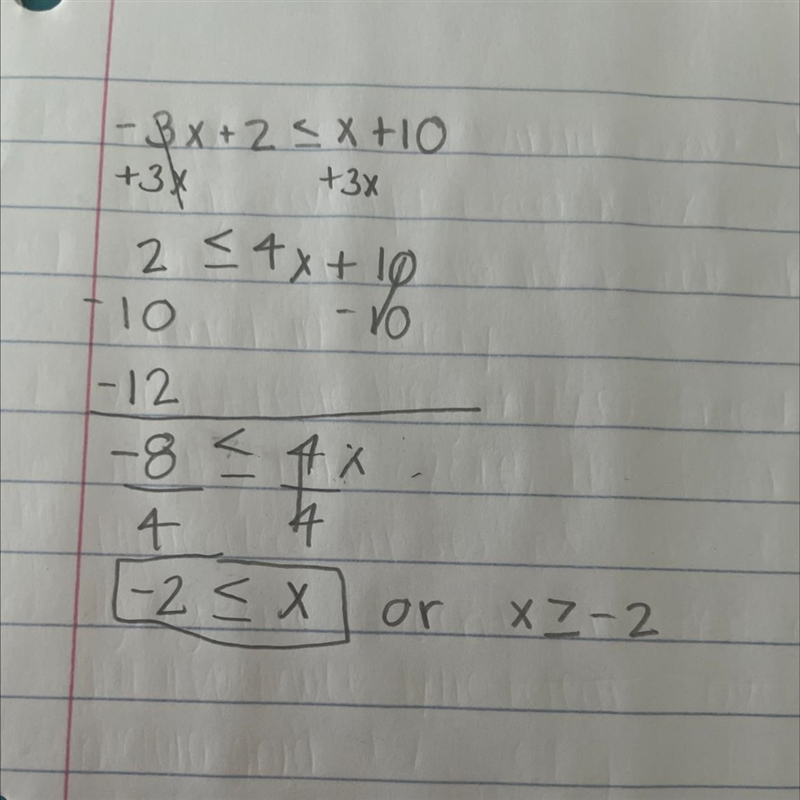 -3x+2 ≤ x+10
+3x +3x
2 ≤ 4x + 10
-10 -10
-12
-8 ≤ 4x
4 4
-2 ≤ x or x ≥ -2